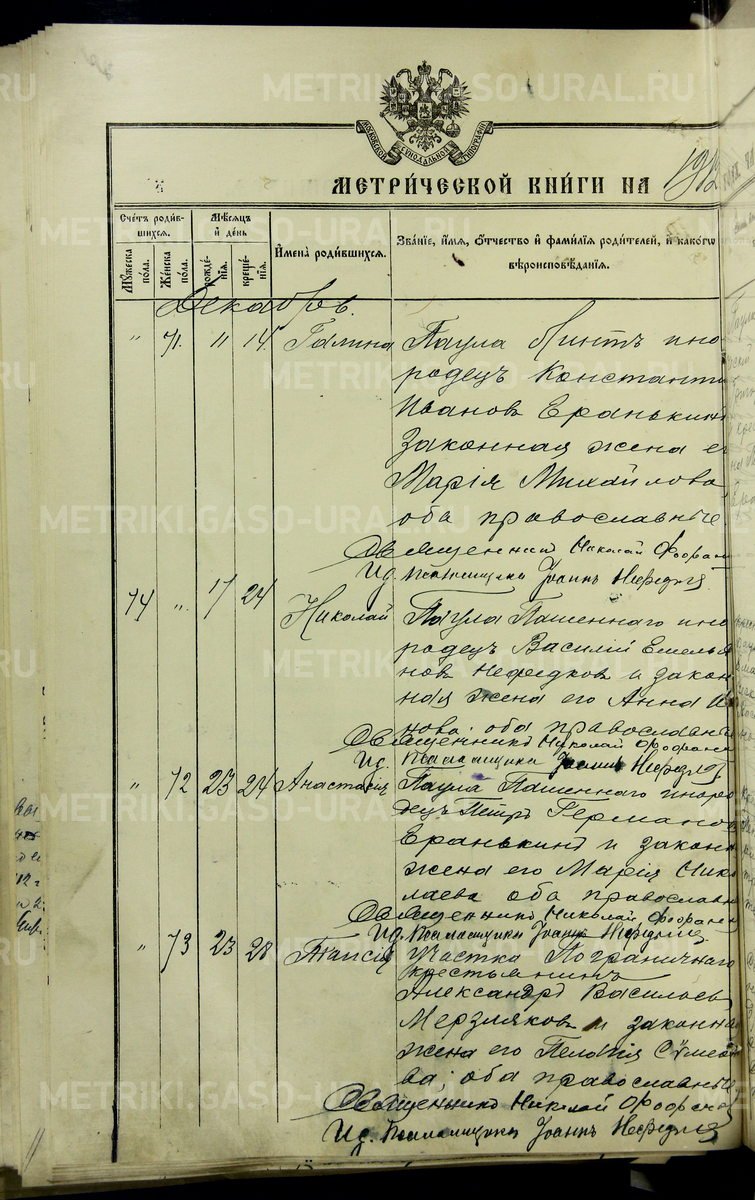 METRIKI.GASO-URAL.RU
МОСКОВСКОЙ СѴНОДАЛЬНОЙ ТИПОГРАФІИ
МЕТРИ́ЧЕСКОЙ КНИ́ГИ НА 1912
Сче́тъ роди́в-
шихся.
Мѣ́сяцъ
и҆ де́нь
Мꙋ́жеска по́ла.
Же́нска по́ла.
рожде́-
нїѧ.
креще́-
нїѧ.
И҆мена̀ роди́вшихся.
Зва́нїе, и҆́мѧ, ѻ҆́тчество и҆ фами́лїѧ роди́телей, и҆ како́гѡ
вѣроисповѣ́данїѧ.
Декабрь.
" 71. 11 14. Галина Паула Минтъ ино
родецъ Константи
Иванов Еранькинъ
Законная жена е
Марія Михайлова
оба православные.
Священникъ Николай
Ид. Псаломщика Іоаннъ Нефедьев
74 " 17 24 Николай Паула Пашеннаго ино
родецъ Василій Емелья
нов Нефедков и закон
ная жена его Анна
нова: оба православны
Священникъ Николай
Ид. Псаломщика Іоаннъ Нефедьев
" 72 23 24 Анастасія Паула Пашеннаго иноро
децъ Петръ Германов
Еранькинъ и законн
жена его Марія Нико
лаева оба православн
Священникъ Николай
Ид. Псаломщика Іоаннъ Нефедьев
" 73 23 28 Таисія Участка Пограничнаго
крестьянинъ
Александръ Васильев
Мерзляков и законна
жена его Пелагія Сумео
ва; оба православные
Священникъ Николай
Ид. Псаломщика Іоаннъ Нефедьев